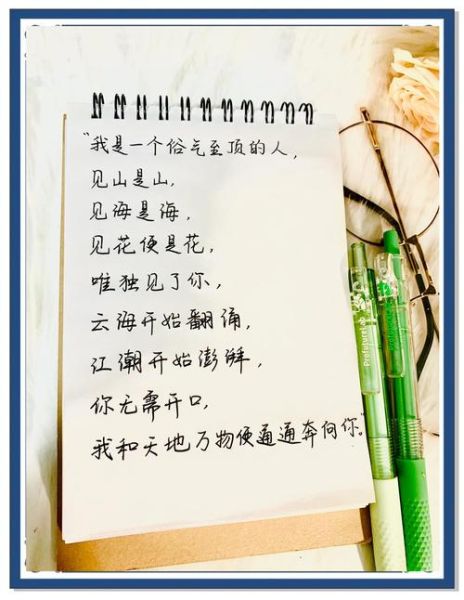 “我是一个俗气至顶的人，
见山是山，
见海是海，
见花便是花，
唯独见了你，
云海开始翻涌，
江潮开始澎湃，
你无需开口，
我和天地万物便通通奔向你。”